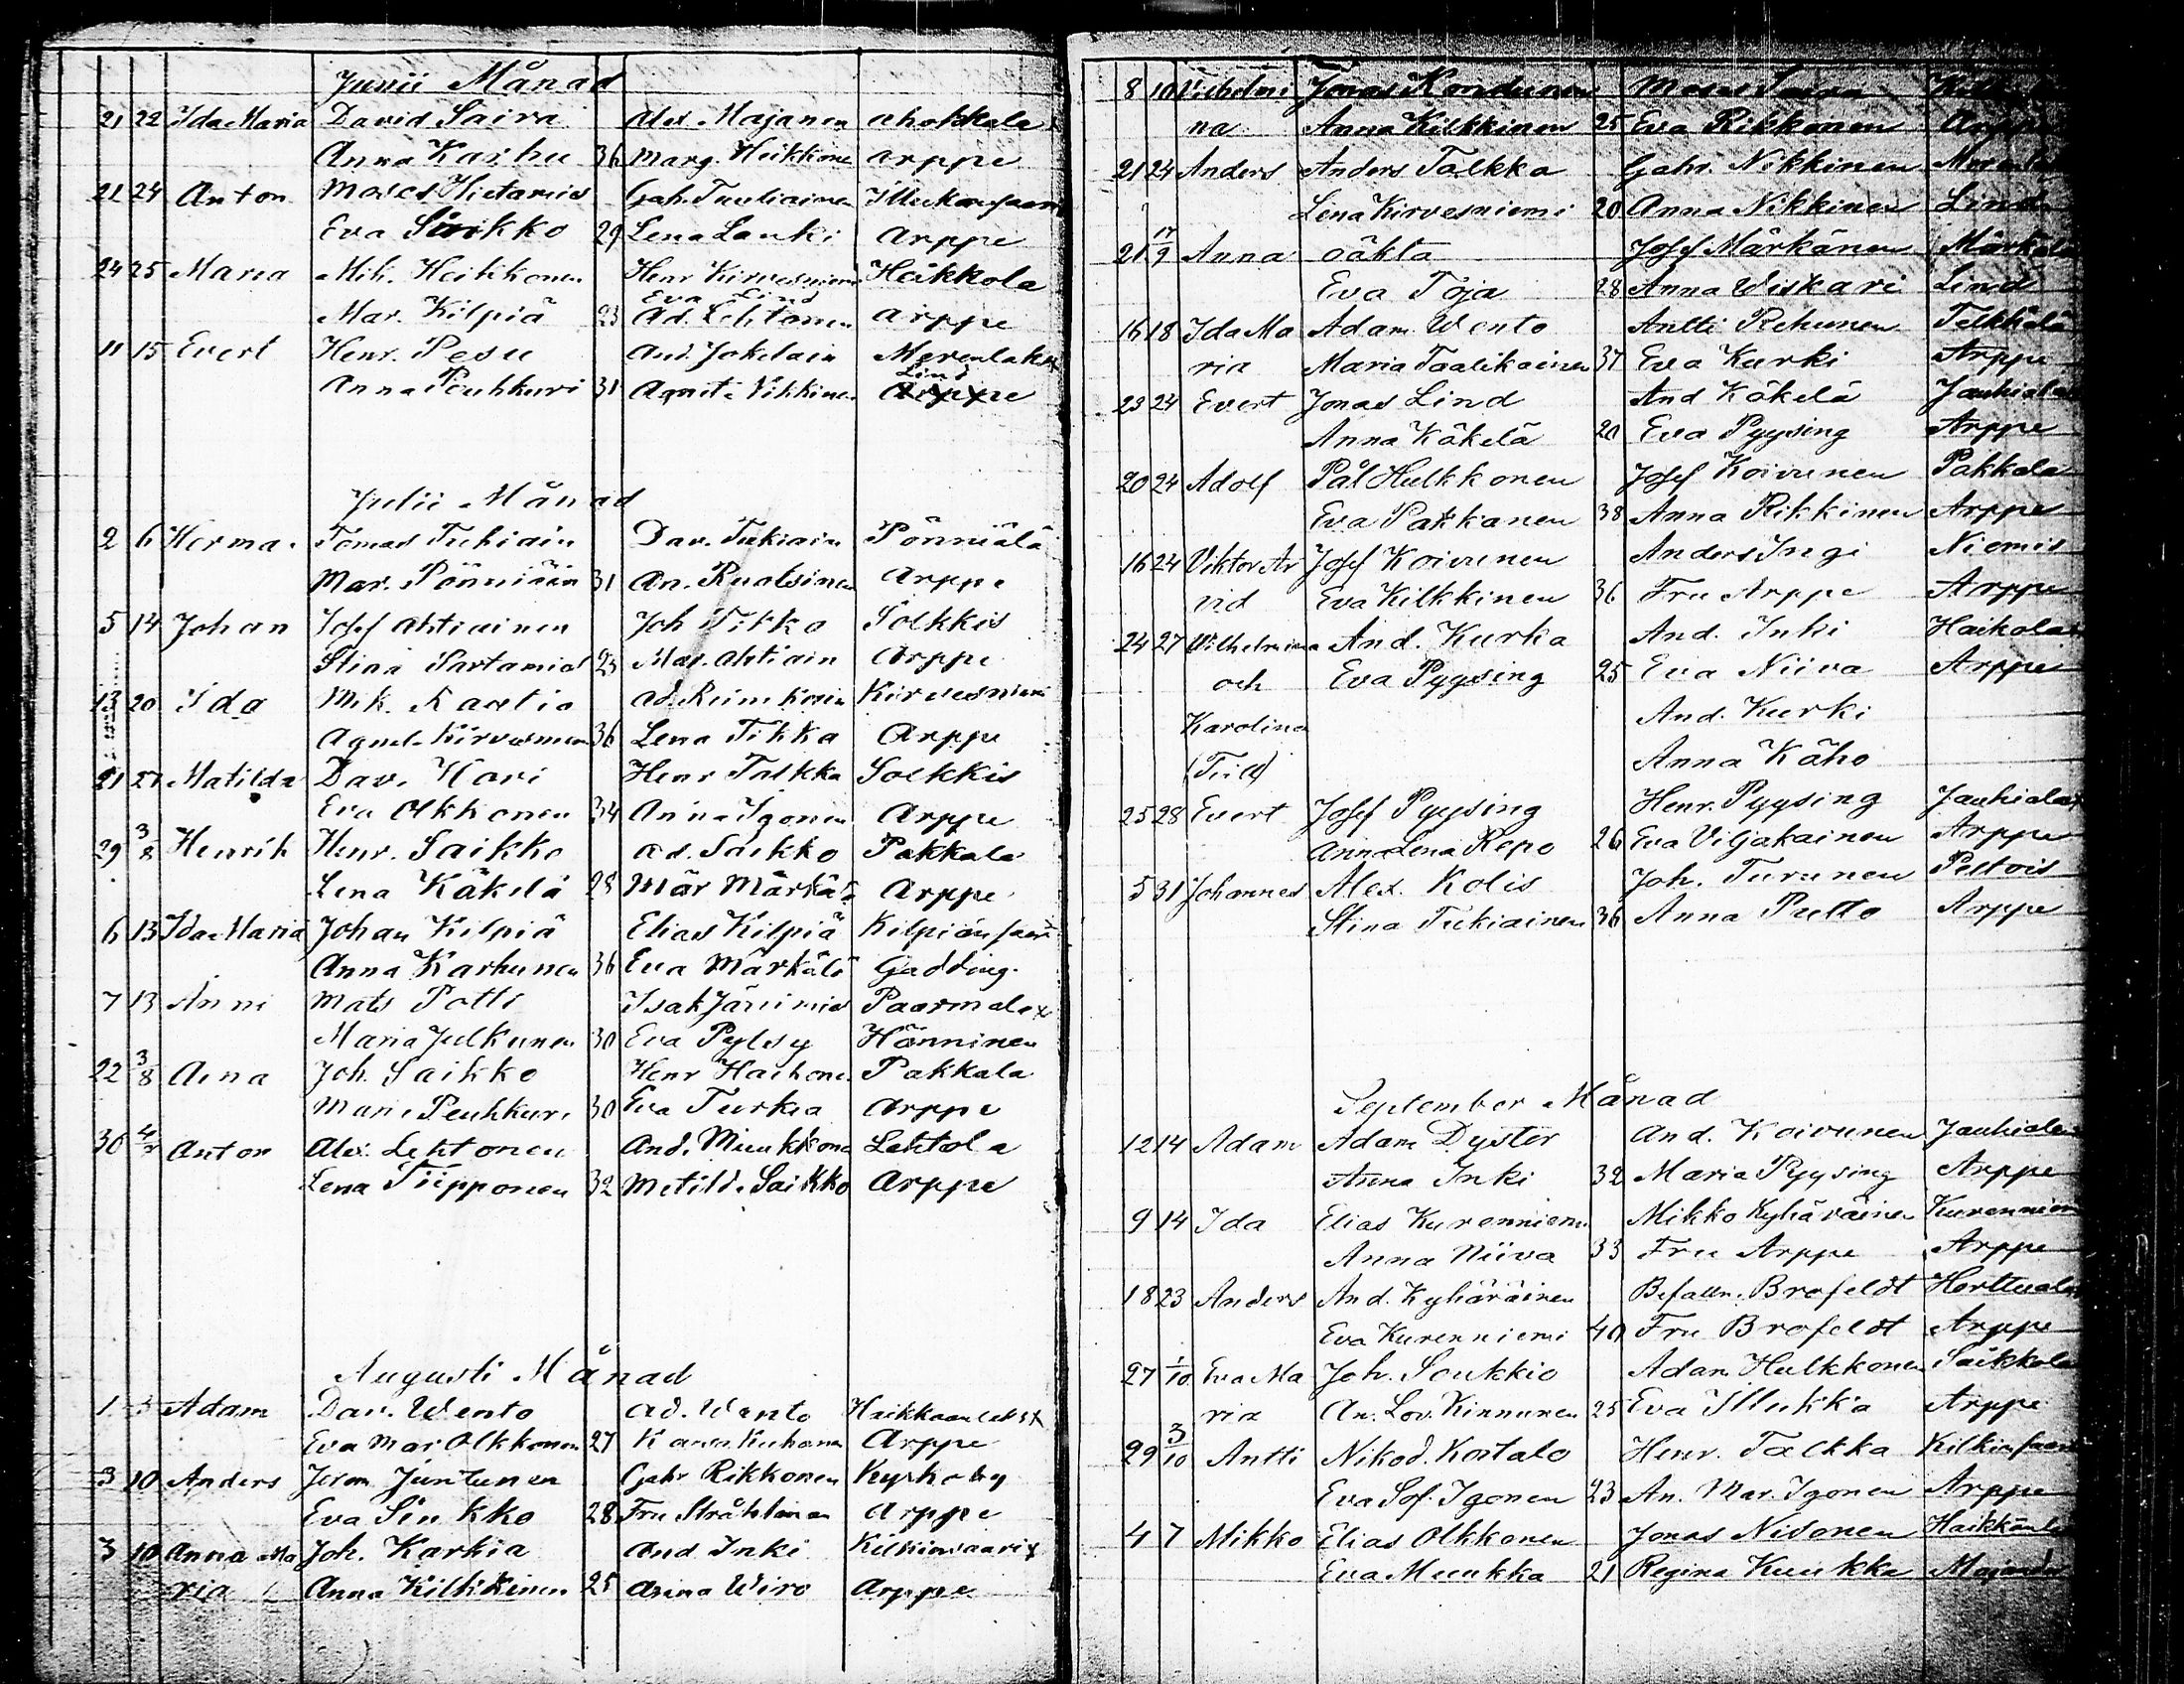 Junii Månad
21 22 Ida Maria David Saira Alex. Majanen Ahokkala
Anna Karhu 36 Marg. Heikkone Arppe
21 24 Anton Moses Hietamies Gab. Tuuliainen
Eva Saikko 29 Lena Lauki Arppe
24 25 Maria Mik. Heikkonen Henr Kirvesniemi Heikkola
Eva Lind
Mar. Kilpiä 23 Ad. Lehtonen Arppe
11 15 Evert Henr. Pesu And. Jokelain Merenlaks x
Lind
Anna Peuhkuri 31 Agneta Nikkinen Arppe
Julii Månad
2 6 Herman Tomas Tukiain Dav. Tukiain Pönniälä
Mar. Pönniäin 31 An. Ruotsinen Arppe
5 14 Johan Josef Ahtiainen Joh Tikka Solkkis
Stina Partamies 23 Mar. Ahtiain Arppe
13 20 Ida Mik. Kirvesniemi
Agnet. Kirvesniem 36 Lena Tikka Arppe
21 27 Matilda Dav. Kari Henr Talkka Solkkis
Eva Olkkonen 34 Anna Igonen Arppe
29 3/8 Henrik Henr. Saikko Ad. Saikko Pakkala
Lena Käkelä 28 Mar Märkälä Arppe
6 13 Ida Maria Johan Kilpiä Elias Kilpiä Kilpiänsaari
Anna Karhunen 36 Eva Märkälä Gadding.
7 13 Anni Mats Potti Isak Jänimies Paarmala x
Maria Julkunen 30 Eva Pylsy Hänninen
22 3/8 Aina Joh. Saikko Henr Haikone Pakkala
Mari Peuhkuri 30 Eva Turkia Arppe
30 4/8 Anton Alex. Lehtonen And. Muukkone Lehtola
Lena Tiipponen 32 Metild. Saikko Arppe
Augusti Månad
1 3 Adam Dav. Wento Ad. Wento Haikkaanlaks x
Eva Mar Olkkonen 27 Arppe
3 10 Anders Jerem Juntunen Gabr Rikkonen Kyrkoby
Eva Siukko 28 Fru Stråhlman Arppe
3 10 Anna Ma Joh. Karkia And Inki Kilkinsaari x
ria Anna Kilkkinen 25 Anna Wiro Arppe
8 10 Vilhelmi Jonas Kondunen Moses Saira
na Anna Kilkkinen 25 Eva Rikkonen Arppe
21 24 Anders Anders Talkka Gabr. Nikkinen
Lena Kirvesniemi 20 Anna Nikkinen Lind
21 17/9 Anna oäkta Josef Märkänen Märkälä
Eva Töja 28 Anna Wiskari Lind
16 18 Ida Ma Adam Wento Antti Rehunen Telkkälä
ria Maria Taalikainen 37 Eva Kurki Arppe
23 24 Evert Jonas Lind And Käkelä Jauhiala
Anna Käkelä 20 Eva Pyysing Arppe
20 24 Adolf Pål Hulkkonen Josef Koivunen Pakkala
Eva Pakkanen 38 Anna Rikkinen Arppe
16 24 Viktor Ar Josef Koivunen Anders Ingi Niemis
vid Eva Kilkkinen 36 Fru Arppe Arppe
24 27 Wilhelmina And. Kurka And. Inki Haikola
och Eva Pyysing 25 Eva Niiva Arppe
Karolina And. Kurki
Anna Käho
25 28 Evert Josef Pyysing Henr. Pyysing Jauhiala
Anna Lena Repo 26 Eva Viljakainen Arppe
5 31 Johannes Alex. Kolis Joh. Turunen Peltois
Stina Tukiainen 36 Anna Putto Arppe
September Månad
12 14 Adam Adam Dyster And. Koivunen Jauhiala
Anna Inki 32 Maria Pyysing Arppe
9 14 Ida Elias Kurenniemi Mikko Kyhäräinen Kurenniem
Anna Niiva 33 Fru Arppe Arppe
18 23 Anders And. Kyhäräinen Befalln. Brofeldt Herttuala
Eva Kurenniemi 40 Fru Brofeldt Arppe
27 1/10 Eva Ma Joh. Soukkio Adam Hulkkonen Saikkola
ria An. Lov. Kinnunen 25 Eva Illukka Arppe
29 3/10 Antti Nikod. Kostalo Henr. Talkka Kilkinsaari
Eva Sof. Igonen 23 An. Mar. Igonen Arppe
4 7 Mikko Elias Olkkonen Jonas Nisonen
Eva Muukka 21 Regina Kuukka